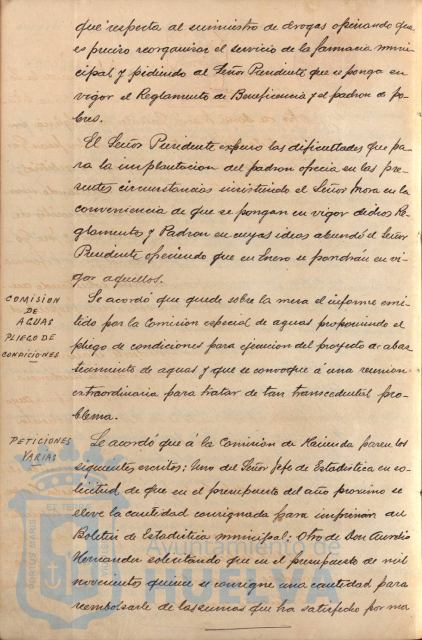 que respecta al suministro de drogas opinando que
es preciso reorganizar el servicio de la farmacia muni
cipal y pidiendo al Señor Presidente que se ponga en
vigor el Reglamento de Beneficencia y el padron de po-
bres.
El Señor Presidente expuso las dificultades que pa-
ra la implantacion del padron ofrecia en las pre-
sentes circunstancias insistiendo el Señor Mora en la
conveniencia de que se pongan en vigor dichos Re-
glamentos y Padron en cuyas ideas abundó el Señor
Presidente ofreciendo que en Enero se pondran en vi-
gor aquellos.
COMISION
DE
AGUAS
PLIEGO DE
CONDICIONES
Se acordó que quede sobre la mesa el informe emi-
tido por la Comision especial de aguas proponiendo el
pliego de condiciones para ejecucion del proyecto de abas
tecimiento de aguas y que se convoque á una reunion
extraordinaria para tratar de tan transcedental pro-
blema.
PETICIONES
VARIAS
Se acordó que á la Comision de Hacienda pasen los
siguientes escritos: Uno del Señor Jefe de Estadistica en so-
licitud de que en el presupuesto del año proximo se
eleve la cantidad consignada para impresion del
Boletin de Estadistica municipal; Otro de Don Aurelio
Hernandez solicitando que en el presupuesto de mil
novecientos quince se consigne una cantidad para
reembolsarle de las sumas que ha satisfecho por me
Ayuntamiento de
HUELVA
PORTUS MARIS